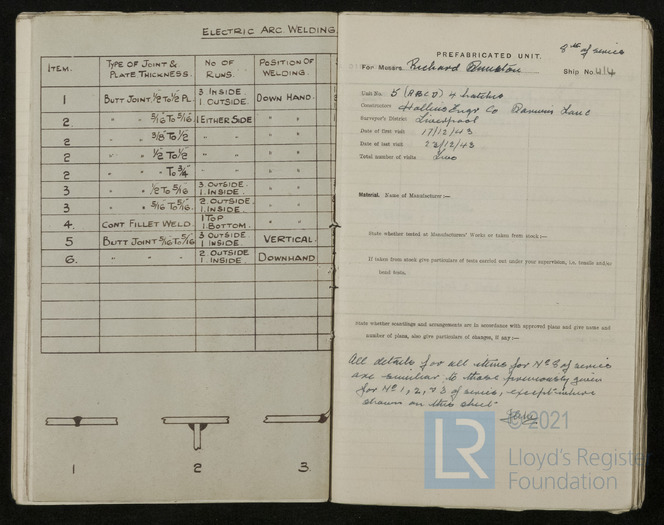 ELECTRIC ARC WELDING.
ITEM. TYPE OF JOINT & PLATE THICKNESS. NO OF RUNS. POSITION OF WELDING.
1 BUTT JOINT. 1/2" TO 1/2" PL. 3. INSIDE. 1. OUTSIDE. DOWN HAND.
2 " " 5/16 TO 5/16 1 EITHER SIDE " "
2 " " 3/8" TO 1/2" " " " "
2 " " 1/2 TO 1/2 " " " "
2 " " TO 3/4" " " " "
3 " " 1/2 TO 5/16 3 OUTSIDE. 1. INSIDE. " "
3 " " 5/16 TO 5/16. 2. OUTSIDE. 1. INSIDE. " "
4. CONT FILLET WELD. 1 TOP 1. BOTTOM. " "
5 BUTT JOINT 5/16 TO 5/16 3 OUTSIDE 1 INSIDE VERTICAL.
6. " " 2 OUTSIDE 1. INSIDE. DOWNHAND
1 2 3.
8th of series
PREFABRICATED UNIT.
For Messrs. Richard Dunston Ship No. 414
Unit No. 5 (ABCD) 4 hatches
Constructors Hollins Engr Co Lane
Surveyor's District Liverpool
Date of first visit 17/12/43
Date of last visit 22/12/43
Total number of visits Two
Material. Name of Manufacturer :—
State whether tested at Manufacturers' Works or taken from stock :—
If taken from stock give particulars of tests carried out under your supervision, i.e. tensile and/or
bend tests.
State whether scantlings and arrangements are in accordance with approved plans and give name and
number of plans, also give particulars of changes, if any :—
All details for all items for No 8 of series
are similar to those previously given
for No 1, 2, & 3 of series, except where
shewn on this sheet
© 2021
LR
Lloyd's Register
Foundation